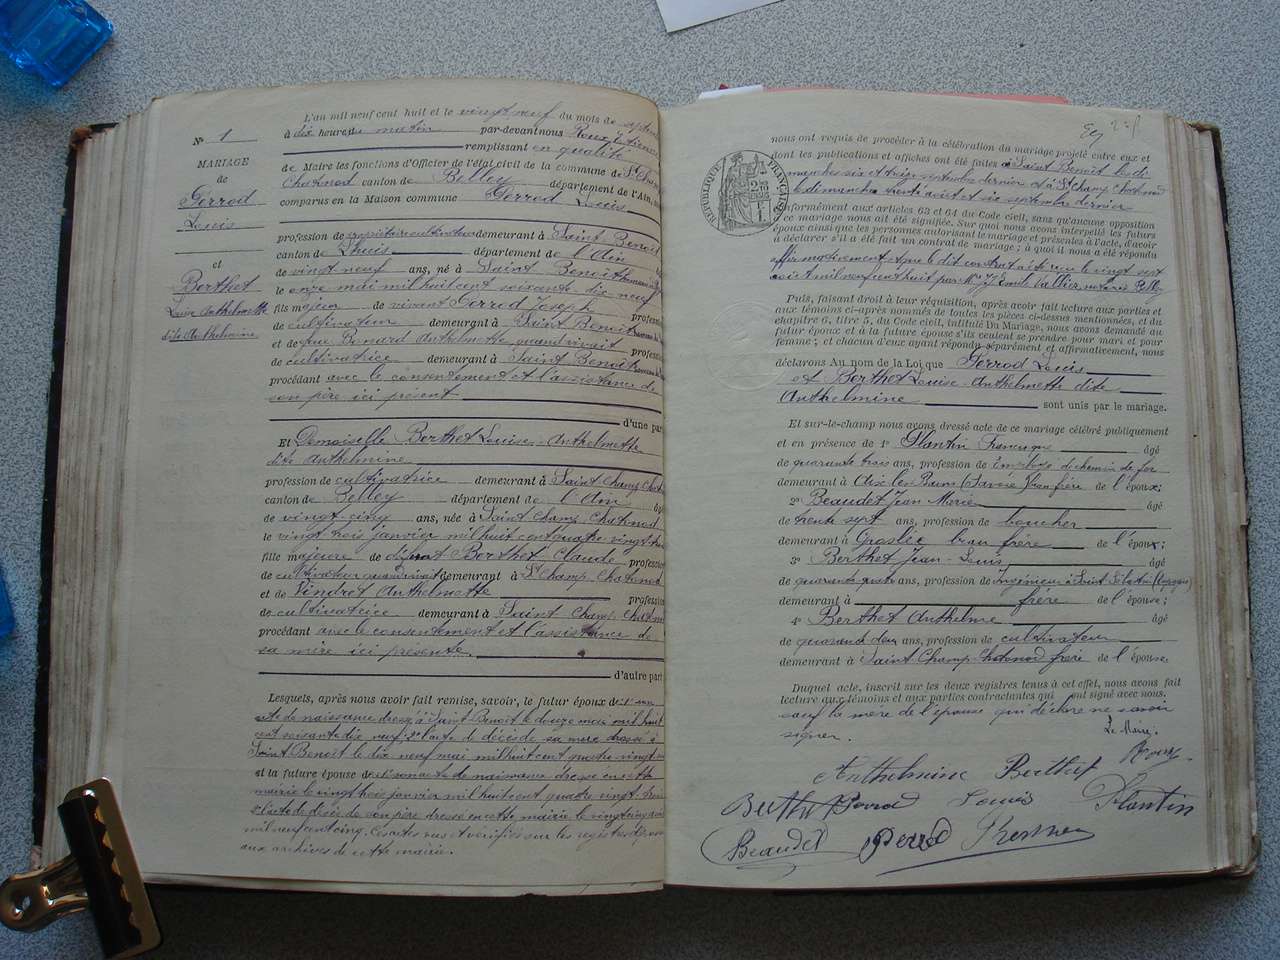 N° 1
MARIAGE
de
Perrod
Louis
et
Berthet
Louise Anthelmette
dite Anthelmine
L'an mil neuf cent huit et le vingt neuf du mois de septem
à dix heures du matin par-devant nous Roux Etienne
remplissant en qualité
de Maire les fonctions d'Officier de l'état civil de la commune de St Champ
Chatonod canton de Belley département de l'Ain,
comparus en la Maison commune Perrod Louis
profession de propriétaire cultivateur demeurant à Saint-Benoit
canton de Lhuis département de l'Ain
de vingt neuf ans, né à Saint Benoit
le onze mai mil huit cent soixante dix neuf
fils majeur de vivant Perrod Joseph profess
de cultivateur demeurant à Saint Benoit
et de feue Donard Anthelmette quand vivait profess
de cultivatrice demeurant à Saint Benoit
procédant avec le consentement et l'assistance de
son père ici présent
d'une par
Et Demoiselle Berthet Louise-Anthelmette
dite Anthelmine
profession de cultivatrice demeurant à Saint Champ Chat
canton de Belley département de l'Ain âg
de vingt cinq ans, née à Saint Champ Chatonod
le vingt trois janvier mil huit cent quatre vingt tro
fille majeure de défunt Berthet Claude profession
de cultivateur quand vivait demeurant à St Champ-Chatonod
et de Vindret Anthelmette profession
de cultivatrice demeurant à Saint Champ Chaton
procédant avec le consentement et l'assistance de
sa mère ici présente
d'autre part
Lesquels, après nous avoir fait remise, savoir, le futur époux de: 1° son
acte de naissance dressé à Saint Benoit le douze mai mil huit
cent soixante dix neuf, 2° l'acte de décès de sa mère dressé à
Saint Benoit le dix neuf mai mil huit cent quatre vingt
et la future épouse de: 1° son acte de naissance dressé en cette
mairie le vingt trois janvier mil huit cent quatre vingt trois
2° l'acte de décès de son père dressé en cette mairie le vingt cinq
mil neuf cent cinq. Ces actes vus et vérifiés sur les registres déposés
aux archives de cette mairie.
RÉPUBLIQUE FRANÇAISE
nous ont requis de procéder à la célébration du mariage projeté entre eux et
dont les publications et affiches ont été faites à Saint Benoit les di
manches six et treize septembre dernier et à St Champ Chatonod
les dimanches trente août et six septembre dernier
conformément aux articles 63 et 64 du Code civil, sans qu'aucune opposition
à ce mariage nous ait été signifiée. Sur quoi nous avons interpellé les futurs
époux ainsi que les personnes autorisant la mariage et présentes à l'acte, d'avoir
à déclarer s'il a été fait un contrat de mariage; à quoi il nous a été répondu
affirmativement et que le dit contrat a été reçu le vingt sept
août mil neuf cent huit par Me
Puis, faisant droit à leur réquisition, après avoir fait lecture aux parties et
aux témoins ci-après nommés de toutes les pièces ci-dessus mentionnées, et du
chapitre 6, titre 5, du Code civil, intitulé Du Mariage, nous avons demandé au
futur époux et à la future épouse s'ils veulent se prendre pour mari et pour
femme; et chacun d'eux ayant répondu séparément et affirmativement, nous
déclarons Au nom de la Loi que Perrod Louis
et Berthet Louise-Anthelmette dite
Anthelmine sont unis par le mariage.
Et sur-le-champ nous avons dressé acte de ce mariage célébré publiquement
et en présence de 1° Plantin Francisque âgé
de quarante trois ans, profession de Employé de chemin de fer
demeurant à Aix les Bains (Savoie) beau frère de l'épouse;
2° Beaudet Jean Marie âgé
de trente sept ans, profession de boucher
demeurant à Groslée beau frère de l'époux;
3° Berthet Jean-Louis âgé
de quarante quatre ans, profession de Ingénieur à Saint
demeurant à frère de l'épouse;
4° Berthet Anthelme âgé
de quarante deux ans, profession de cultivateur
demeurant à Saint Champ-Chatonod frère de l'épouse.
Duquel acte, inscrit sur les deux registres tenus à cet effet, nous avons fait
lecture aux témoins et aux parties contractantes qui ont signé avec nous.
sauf la mère de l'épouse qui déclare ne savoir
signer.
Le Maire,
Roux
Anthelmine Berthet
Berthet Perrod Louis Plantin
Beaudet Perrod